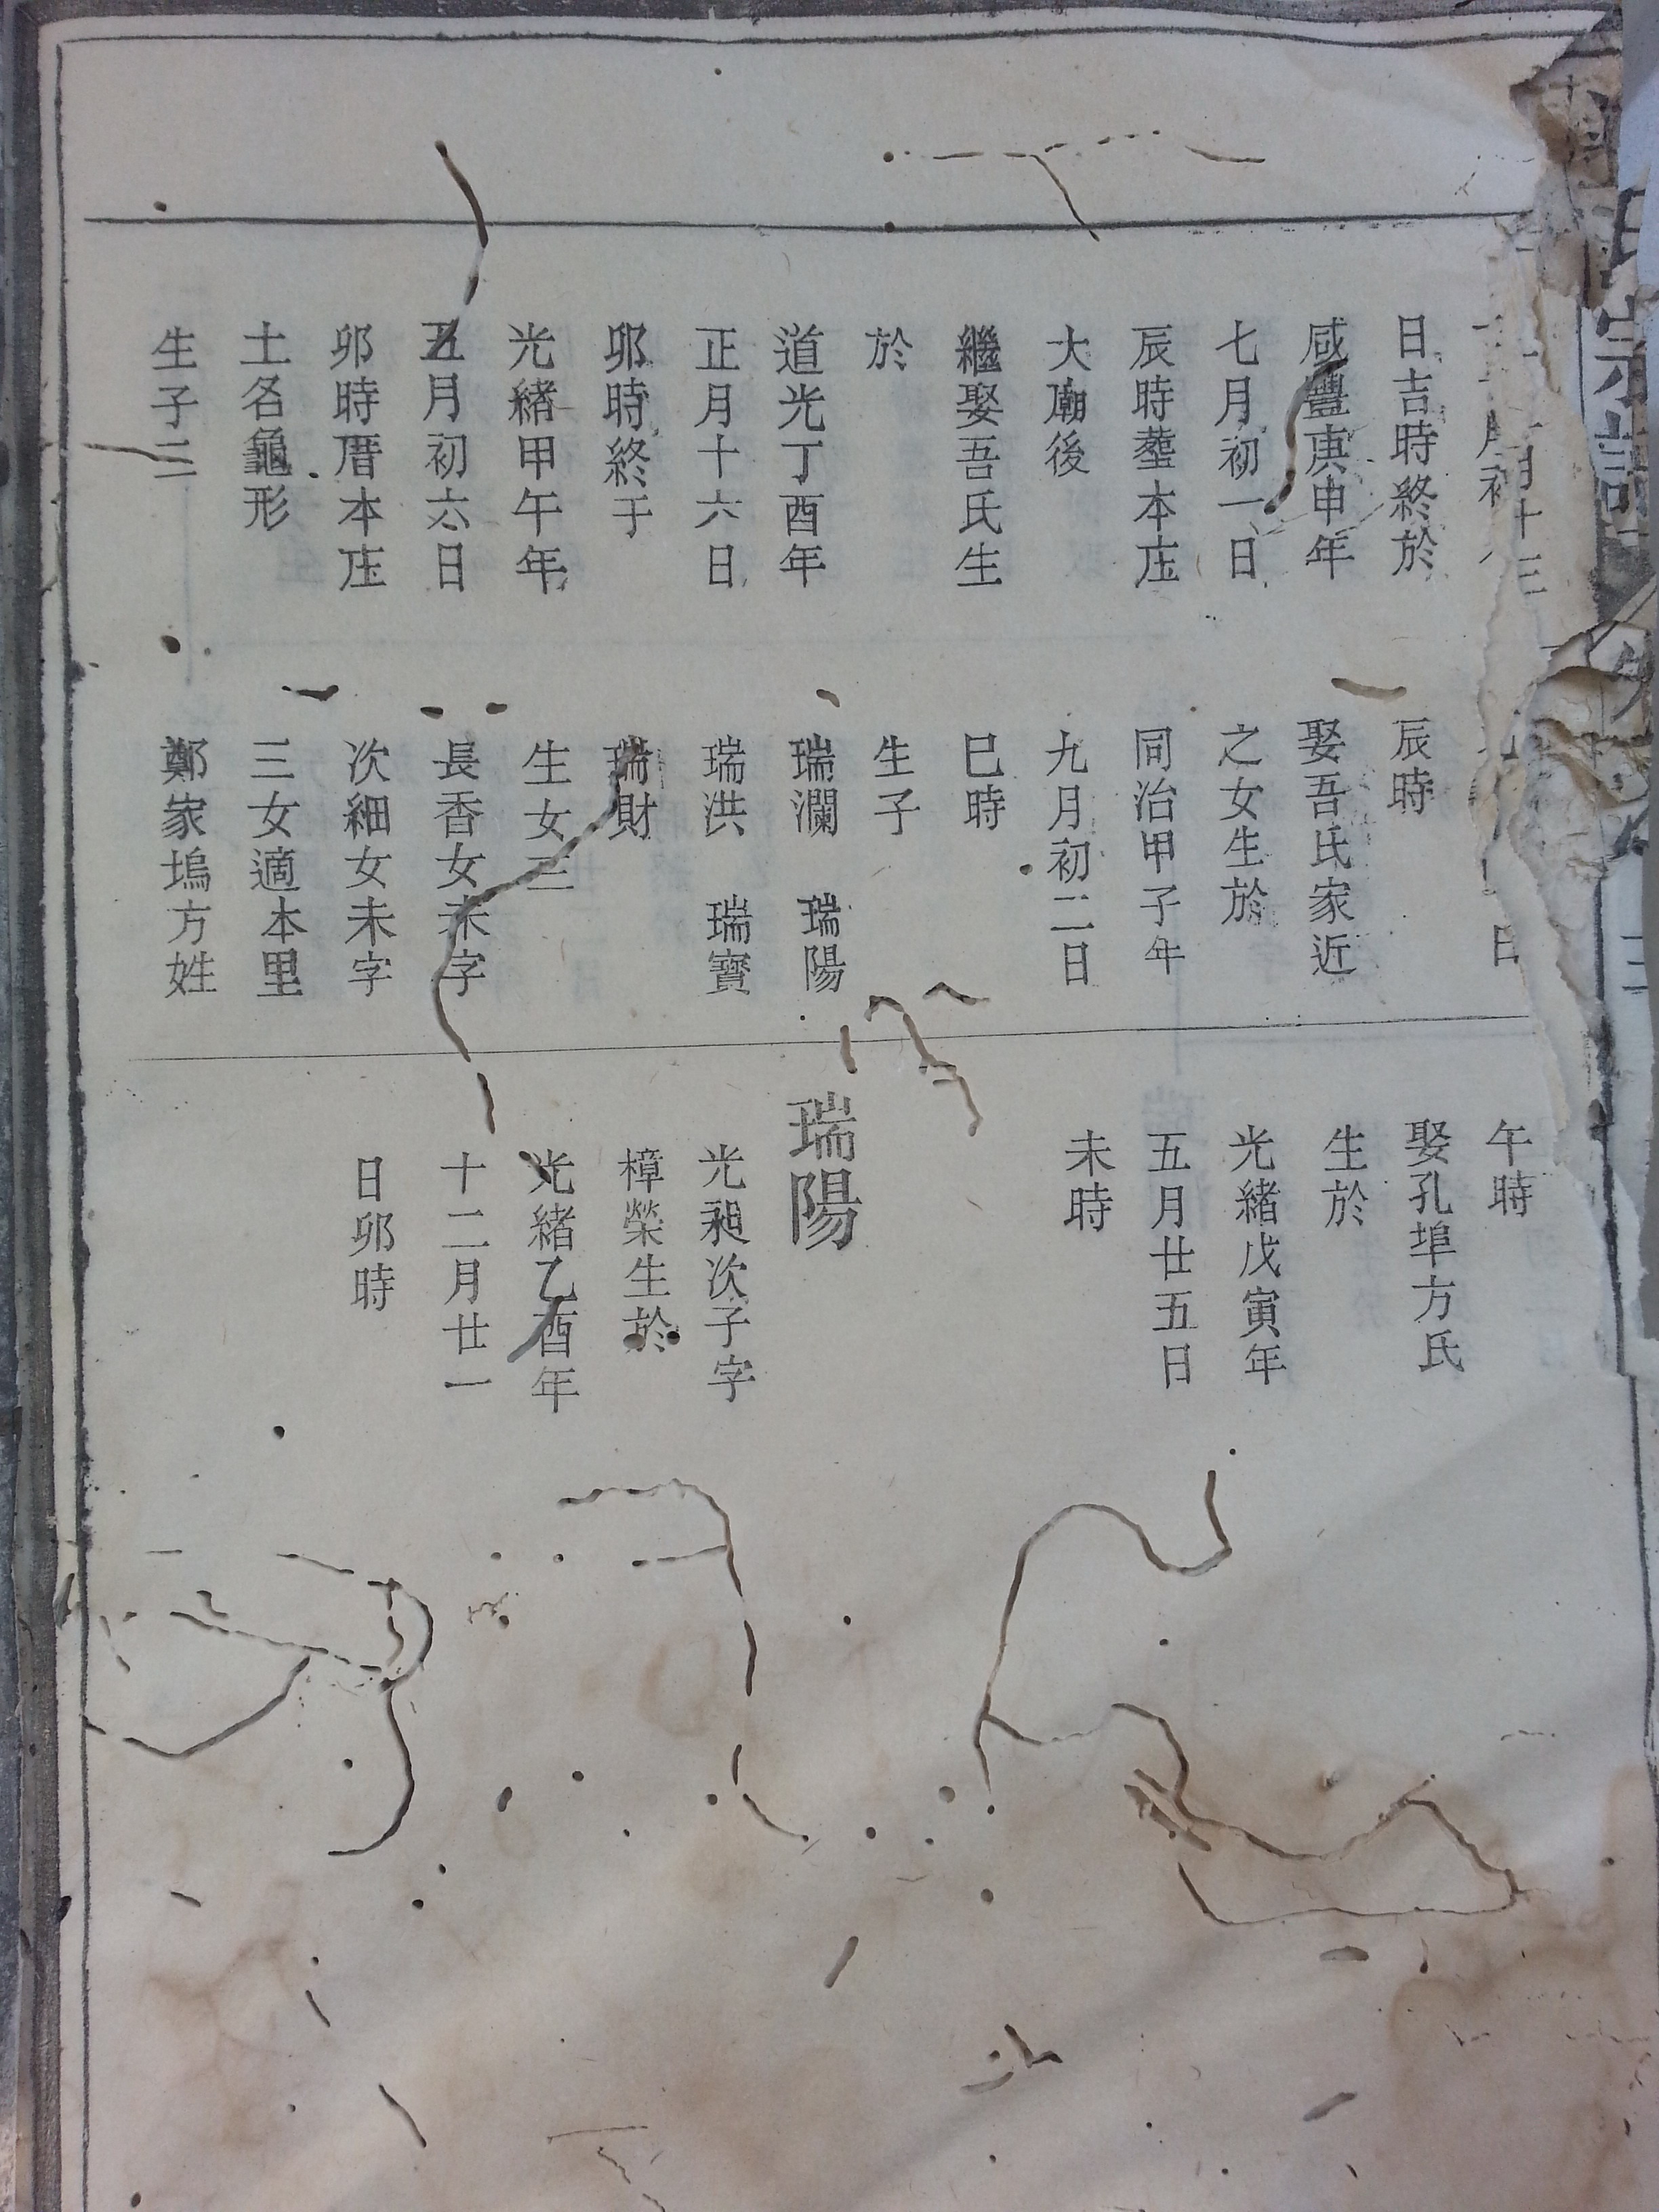 氏宗譜
月十三
日吉時終於
咸豐庚申年
七月初一日
辰時塟本庄
大廟後
繼娶吾氏生
於
道光丁酉年
正月十六日
卯時終于
光緒甲午年
五月初六日
卯時厝本庄
土名龜形
生子二
日
辰時
娶吾氏家近
之女生於
同治甲子年
九月初二日
巳時
生子
瑞瀾 瑞陽
瑞洪 瑞寳
瑞財
生女三
長香女未字
次細女未字
三女適本里
鄭家塢方姓
午時
娶孔埠方氏
生於
光緒戊寅年
五月廿五日
未時
瑞陽
光昶次子字
樟榮生於
光緒乙酉年
十二月廿一
日卯時